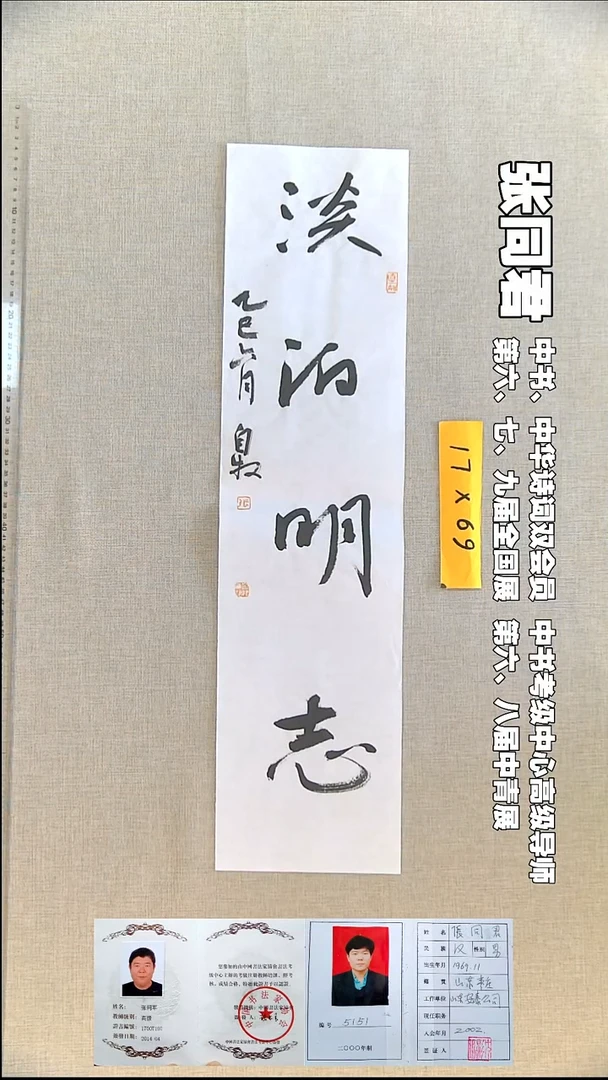 淡泊明志
乙巳六月
17×69
张同君
中书、中华诗词双会员 中书考级中心高级导师
第六、七、九届全国展 第六、八届中青展
姓名:
教师级别: 高级
证书编号:
颁发日期: 2014 04
编号 5151
二〇〇〇年制
姓名 张同君
民族 汉 性别 男
出生年月 1969.11
籍贯 山东
工作单位
现任职务
入会年月 2002
签证人